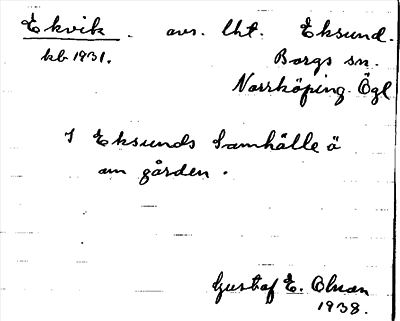 Ekvik. avs. lht. Eksund.
kb 1931. Borgs sn.
Norrköping. Ögl
I Eksunds Samhälle ä
an gården.
Gustaf E. Olsson
1938.